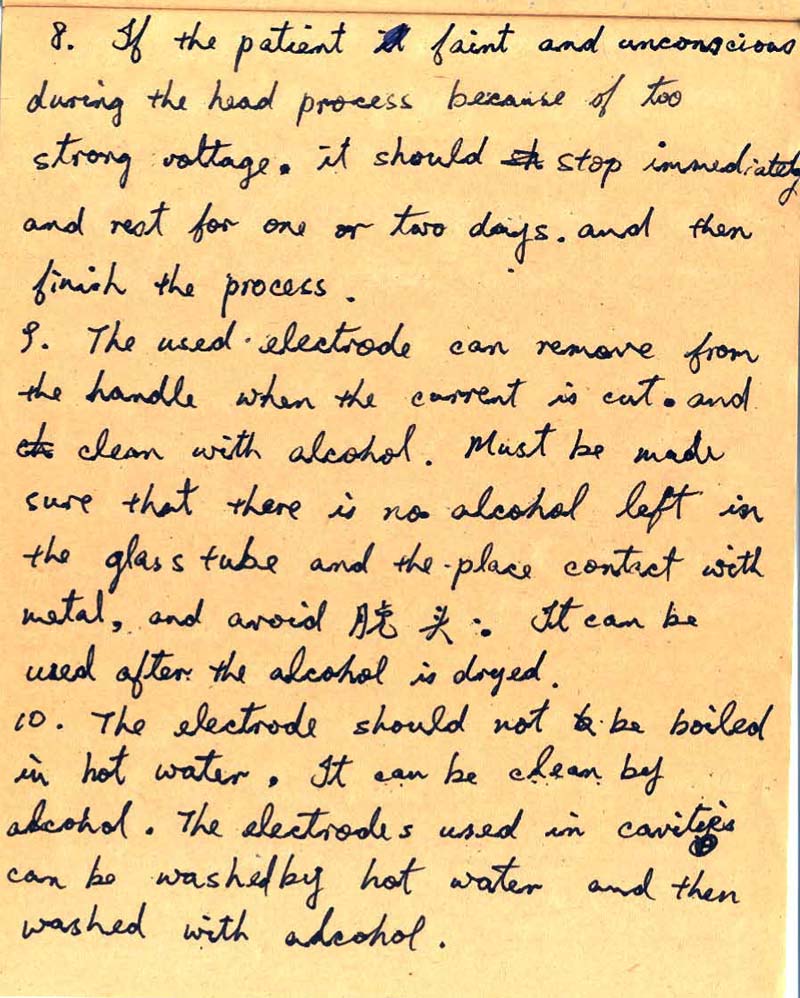 8. If the patient faint and unconscious
during the head process because of too
strong voltage. it should stop immediately
and rest for one or two days. and then
finish the process.
9. The used electrode can remove from
the handle when the current is cut. and
clean with alcohol. Must be made
sure that there is no alcohol left in
the glass tube and the place contact with
metal, and avoid 脱头. It can be
used after the alcohol is dryed.
10. The electrode should not be boiled
in hot water. It can be clean by
alcohol. The electrodes used in cavities
can be washed by hot water and then
washed with adcohol.